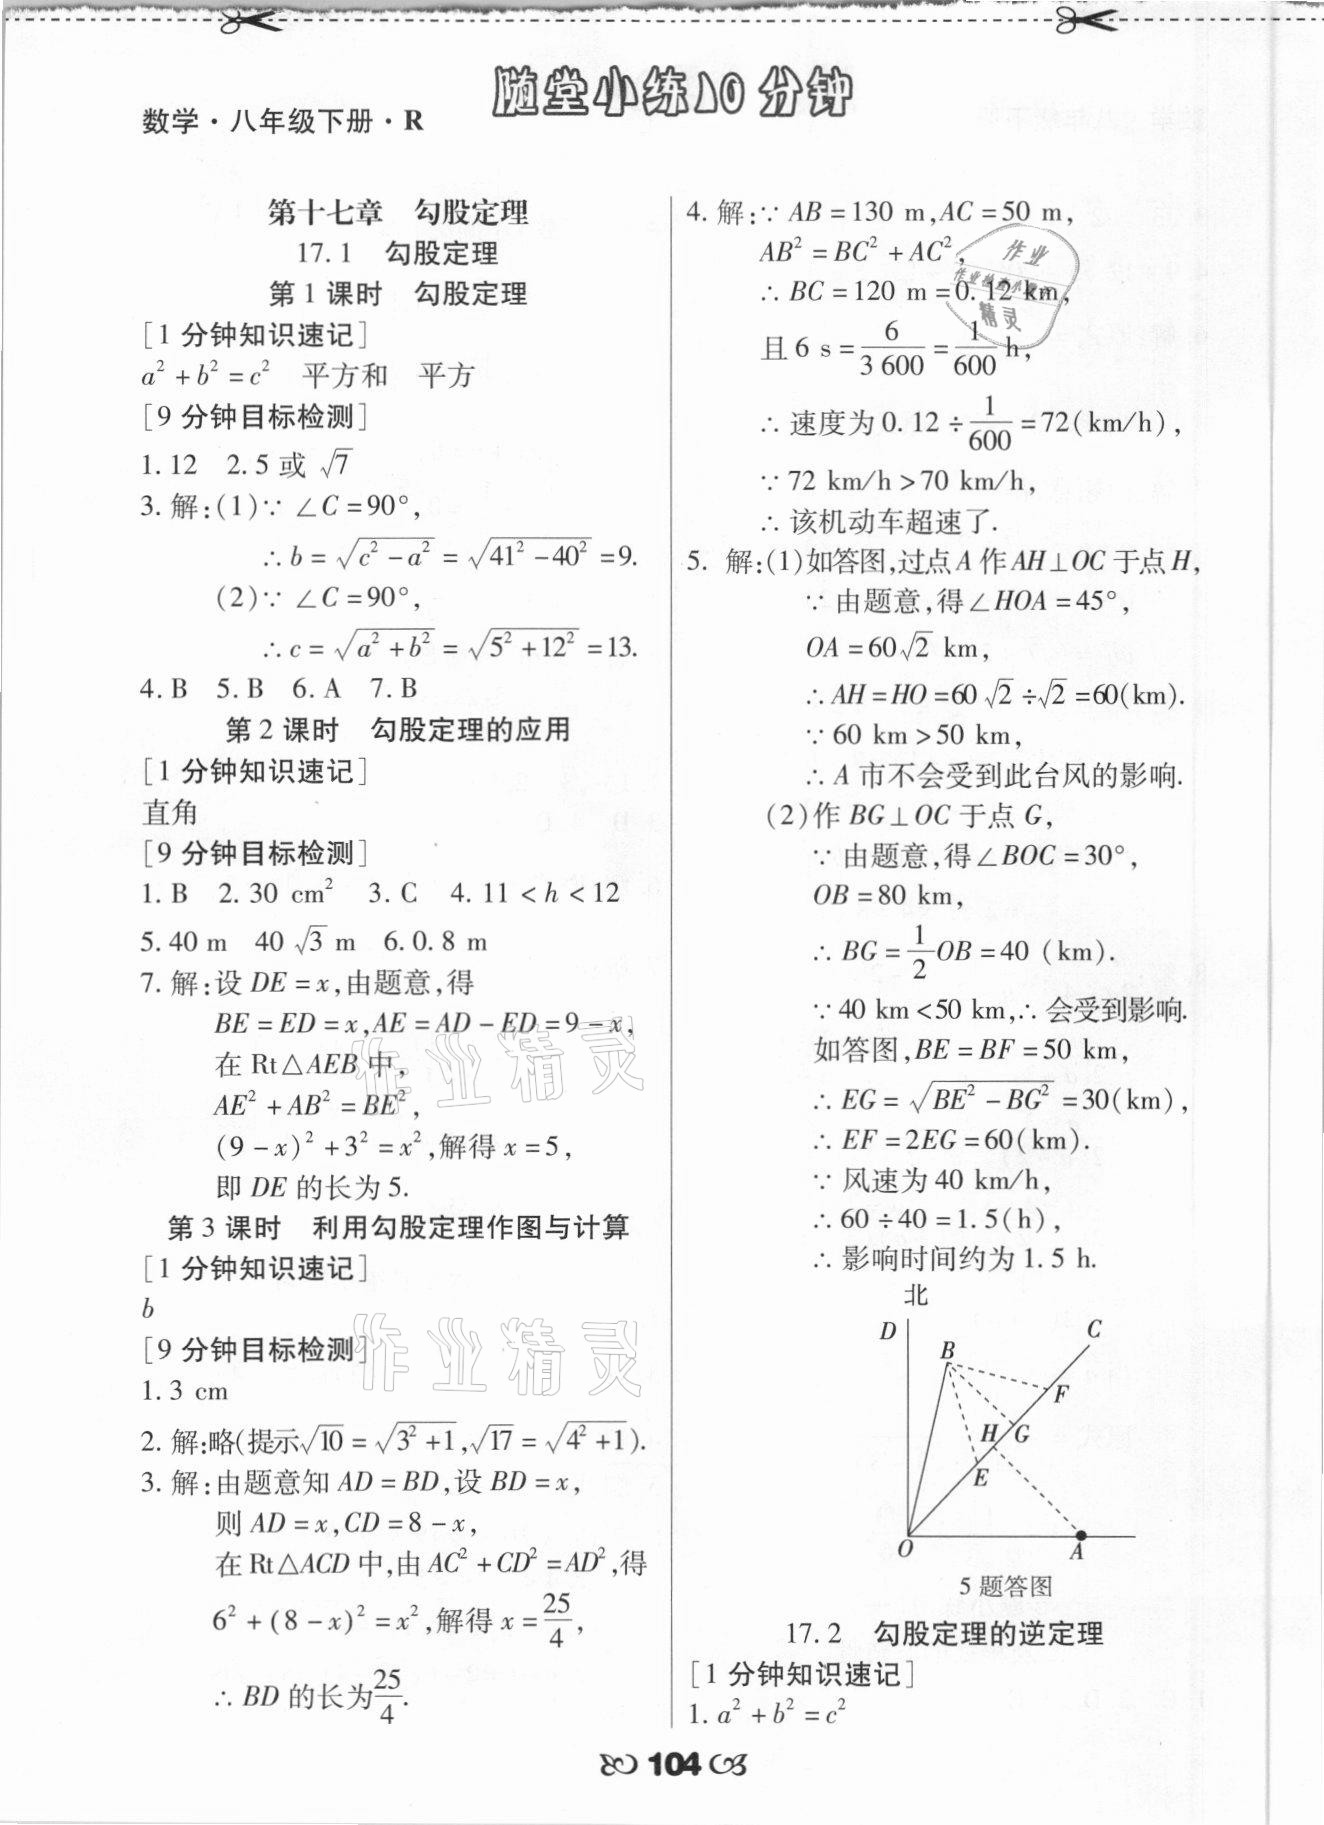 随堂小练10分钟
数学·八年级下册·R
第十七章 勾股定理
17.1 勾股定理
第1课时 勾股定理
[1分钟知识速记]
a²+b²=c² 平方和 平方
[9分钟目标检测]
1.12 2.5或√7
3.解:(1)∵∠C=90°,
∴b=√(c²-a²)=√(41²-40²)=9.
(2)∵∠C=90°,
∴c=√(a²+b²)=√(5²+12²)=13.
4.B 5.B 6.A 7.B
第2课时 勾股定理的应用
[1分钟知识速记]
直角
[9分钟目标检测]
1.B 2.30 cm² 3.C 4.11<h<12
5.40 m 40√3 m 6.0.8 m
7.解:设DE=x,由题意,得
BE=ED=x,AE=AD-ED=9-x,
在Rt△AEB中,
AE²+AB²=BE²,
(9-x)²+3²=x²,解得x=5,
即DE的长为5.
第3课时 利用勾股定理作图与计算
[1分钟知识速记]
b
[9分钟目标检测]
1.3 cm
2.解:略(提示√10=√(3²+1),√17=√(4²+1)).
3.解:由题意知AD=BD,设BD=x,
则AD=x,CD=8-x,
在Rt△ACD中,由AC²+CD²=AD²,得
6²+(8-x)²=x²,解得x=25/4,
∴BD的长为25/4.
4.解:∵AB=130 m,AC=50 m,
AB²=BC²+AC²,
∴BC=120 m=0.12 km,
且6 s=6/3 600=1/600 h,
∴速度为0.12÷1/600=72(km/h),
∵72 km/h>70 km/h,
∴该机动车超速了.
5.解:(1)如答图,过点A作AH⊥OC于点H,
∵由题意,得∠HOA=45°,
OA=60√2 km,
∴AH=HO=60√2÷√2=60(km).
∵60 km>50 km,
∴A市不会受到此台风的影响.
(2)作BG⊥OC于点G,
∵由题意,得∠BOC=30°,
OB=80 km,
∴BG=1/2OB=40 (km).
∵40 km<50 km,∴会受到影响.
如答图,BE=BF=50 km,
∴EG=√(BE²-BG²)=30(km),
∴EF=2EG=60(km).
∵风速为40 km/h,
∴60÷40=1.5(h),
∴影响时间约为1.5 h.
北
D
C
B
F
H
G
E
O
A
5题答图
17.2 勾股定理的逆定理
[1分钟知识速记]
1.a²+b²=c²
104
作业精灵
作业精灵
作业
精灵